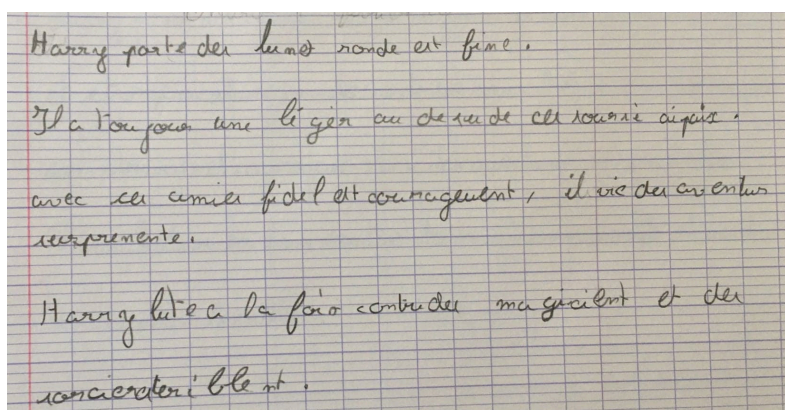 Harry parte des lunet ronde est fine.
Il a toujour une légèr au desu de ces soursi aipais.
avec ces amies fidel est courageuent, il vie des aventur
surprenente.
Harry lute a la fois contre des magicient et des
sorcieraterriblent.